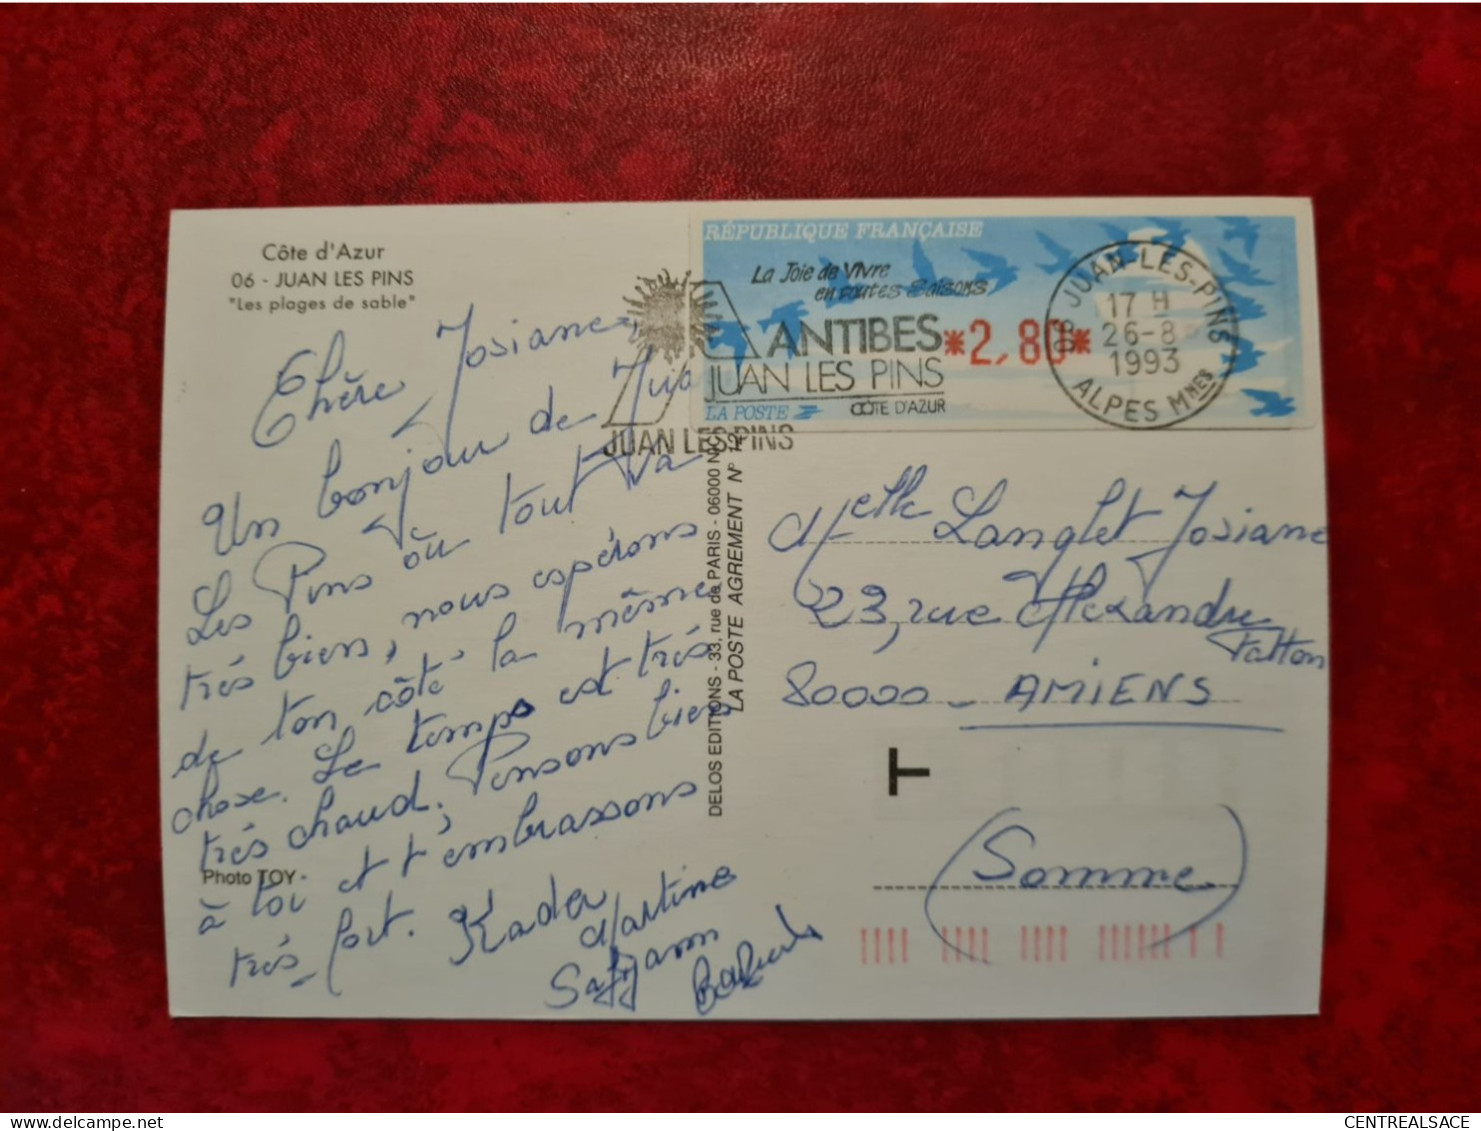 Côte d'Azur
06 - JUAN LES PINS
"Les plages de sable"
Chère Josiane,
Un bonjour de Juan
Les Pins où tout va
très bien, nous espérons
de ton côté la même
chose. Le temps est très
très chaud. Pensons bien
à toi et t'embrassons
très fort. Kader
Martine
Photo TOY -
DELOS EDITIONS - 33, rue de PARIS - 06000 NICE
LA POSTE AGREMENT N° 12
RÉPUBLIQUE FRANÇAISE
La Joie de Vivre
en toutes Saisons
ANTIBES
JUAN LES PINS
CÔTE D'AZUR
JUAN LES PINS
LA POSTE
*2,80*
JUAN-LES-PINS
17 H
26-8
1993
ALPES MNES
Melle Langlet Josiane
23, rue Alexandre
Fatton
80000 - AMIENS
T
(Somme)
CENTREALSACE